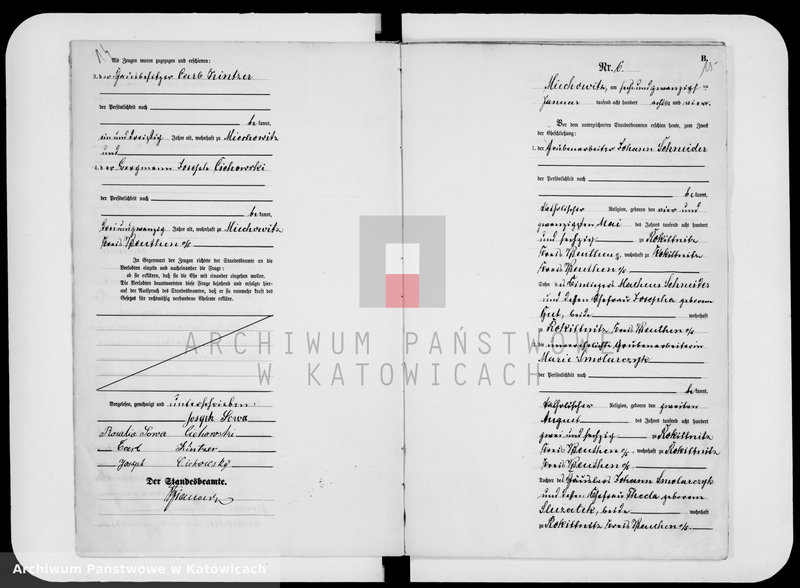 14
Als Zeugen waren zugezogen und erschienen:
3. der Hausbesitzer Carl Kintzer
der Persönlichkeit nach
be kannt,
ein und dreißig Jahre alt, wohnhaft zu Miechowitz
und
4. der Bergmann Joseph Cichowski
der Persönlichkeit nach
be kannt,
drei und zwanzig Jahre alt, wohnhaft zu Miechowitz
Kreis Beuthen o/S
In Gegenwart der Zeugen richtete der Standesbeamte an die
Verlobten einzeln und nacheinander die Frage:
ob sie erklären, daß sie die Ehe mit einander eingehen wollen.
Die Verlobten beantworteten diese Frage bejahend und erfolgte hier-
auf der Ausspruch des Standesbeamten, daß er sie nunmehr kraft des
Gesetzes für rechtmäßig verbundene Eheleute erkläre.
Vorgelesen, genehmigt und unterschrieben:
Joseph Sowa
Rosalia Sowa Cichowski
Carl Kintzer
Joseph Cichowsky
Der Standesbeamte.
B.
15
Nr. 6.
Miechowitz, am sechsundzwanzigsten
Januar tausend acht hundert achtzig und vier.
Vor dem unterzeichneten Standesbeamten erschienen heute, zum Zweck
der Eheschließung:
1. der Grubenarbeiter Johann Schneider
der Persönlichkeit nach
be kannt,
katholischer Religion, geboren den vier und
zwanzigsten Mai des Jahres tausend acht hundert
und sechzig zu Rokittnitz
Kreis Beuthen, wohnhaft zu Rokittnitz
Kreis Beuthen o/S
Sohn des Matheus Schneider
und dessen Ehefrau Josepha geborene
beide wohnhaft
zu Rokittnitz Kreis Beuthen o/S
2. die unverehelichte Grubenarbeiterin
Marie Smolarczyk
der Persönlichkeit nach
be kannt,
katholischer Religion, geboren den zweiten
August des Jahres tausend acht hundert
zwei und sechzig zu Rokittnitz
Kreis Beuthen o/S, wohnhaft zu Rokittnitz
Kreis Beuthen o/S
Tochter des Häuslers Johann Smolarczyk
und dessen Ehefrau Thecla geborene
Sluzalek, beide wohnhaft
zu Rokittnitz Kreis Beuthen o/S
ARCHIWUM PAŃSTWOWE
W KATOWICACH
Archiwum Państwowe w Katowicach